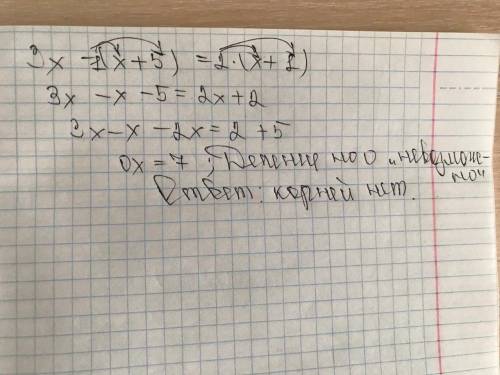 3x - 1(x + 5) = 2 · (x + 1)
3x - x - 5 = 2x + 2
3x - x - 2x = 2 + 5
0x = 7; Деление на 0 "невозможе-
но"
Ответ: корней нет.